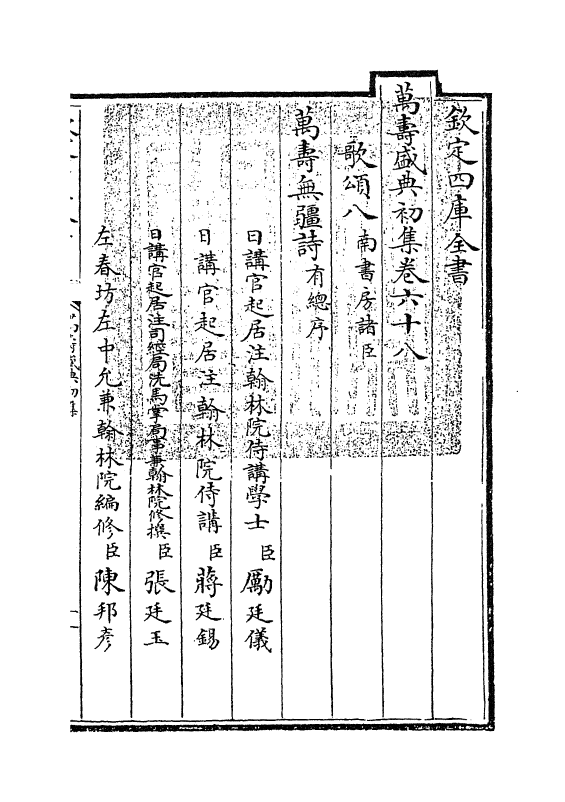 欽定四庫全書
萬壽盛典初集卷六十八
歌頌八南書房諸臣
萬壽無疆詩有總序
日講官起居注翰林院侍講學士臣勵廷儀
日講官起居注翰林院侍講臣蔣廷錫
日講官起居注司經局洗馬掌局事兼翰林院修撰臣張廷玉
左春坊左中允兼翰林院編修臣陳邦彥